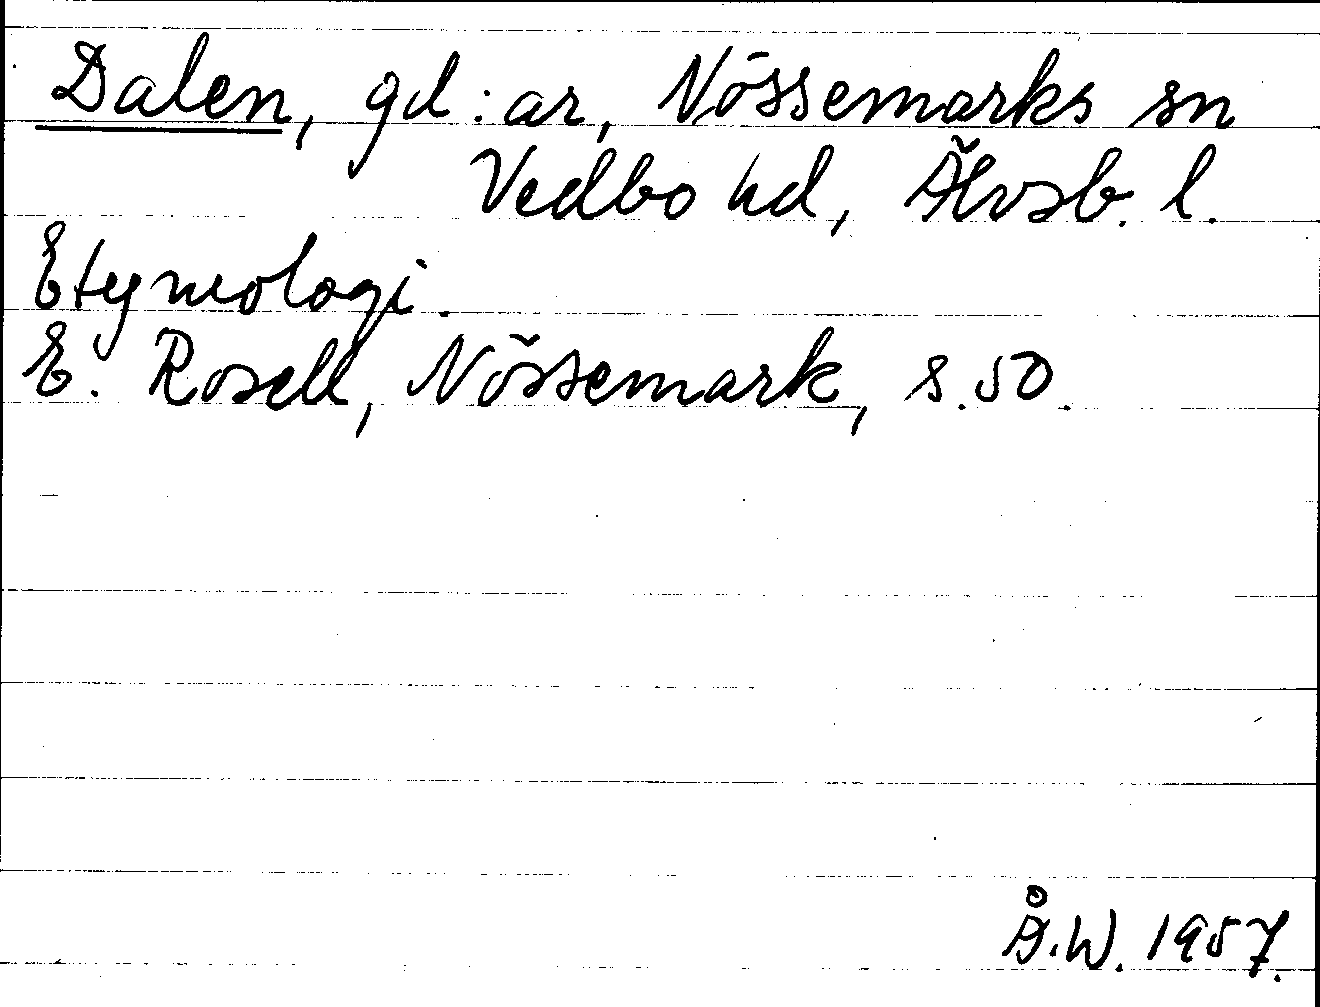 Dalen, gd:ar, Nössemarks sn
Vedbo hd, Älvsb. l.
Etymologi.
E. Rosell, Nössemark, s. 50.
Å.W. 1957.